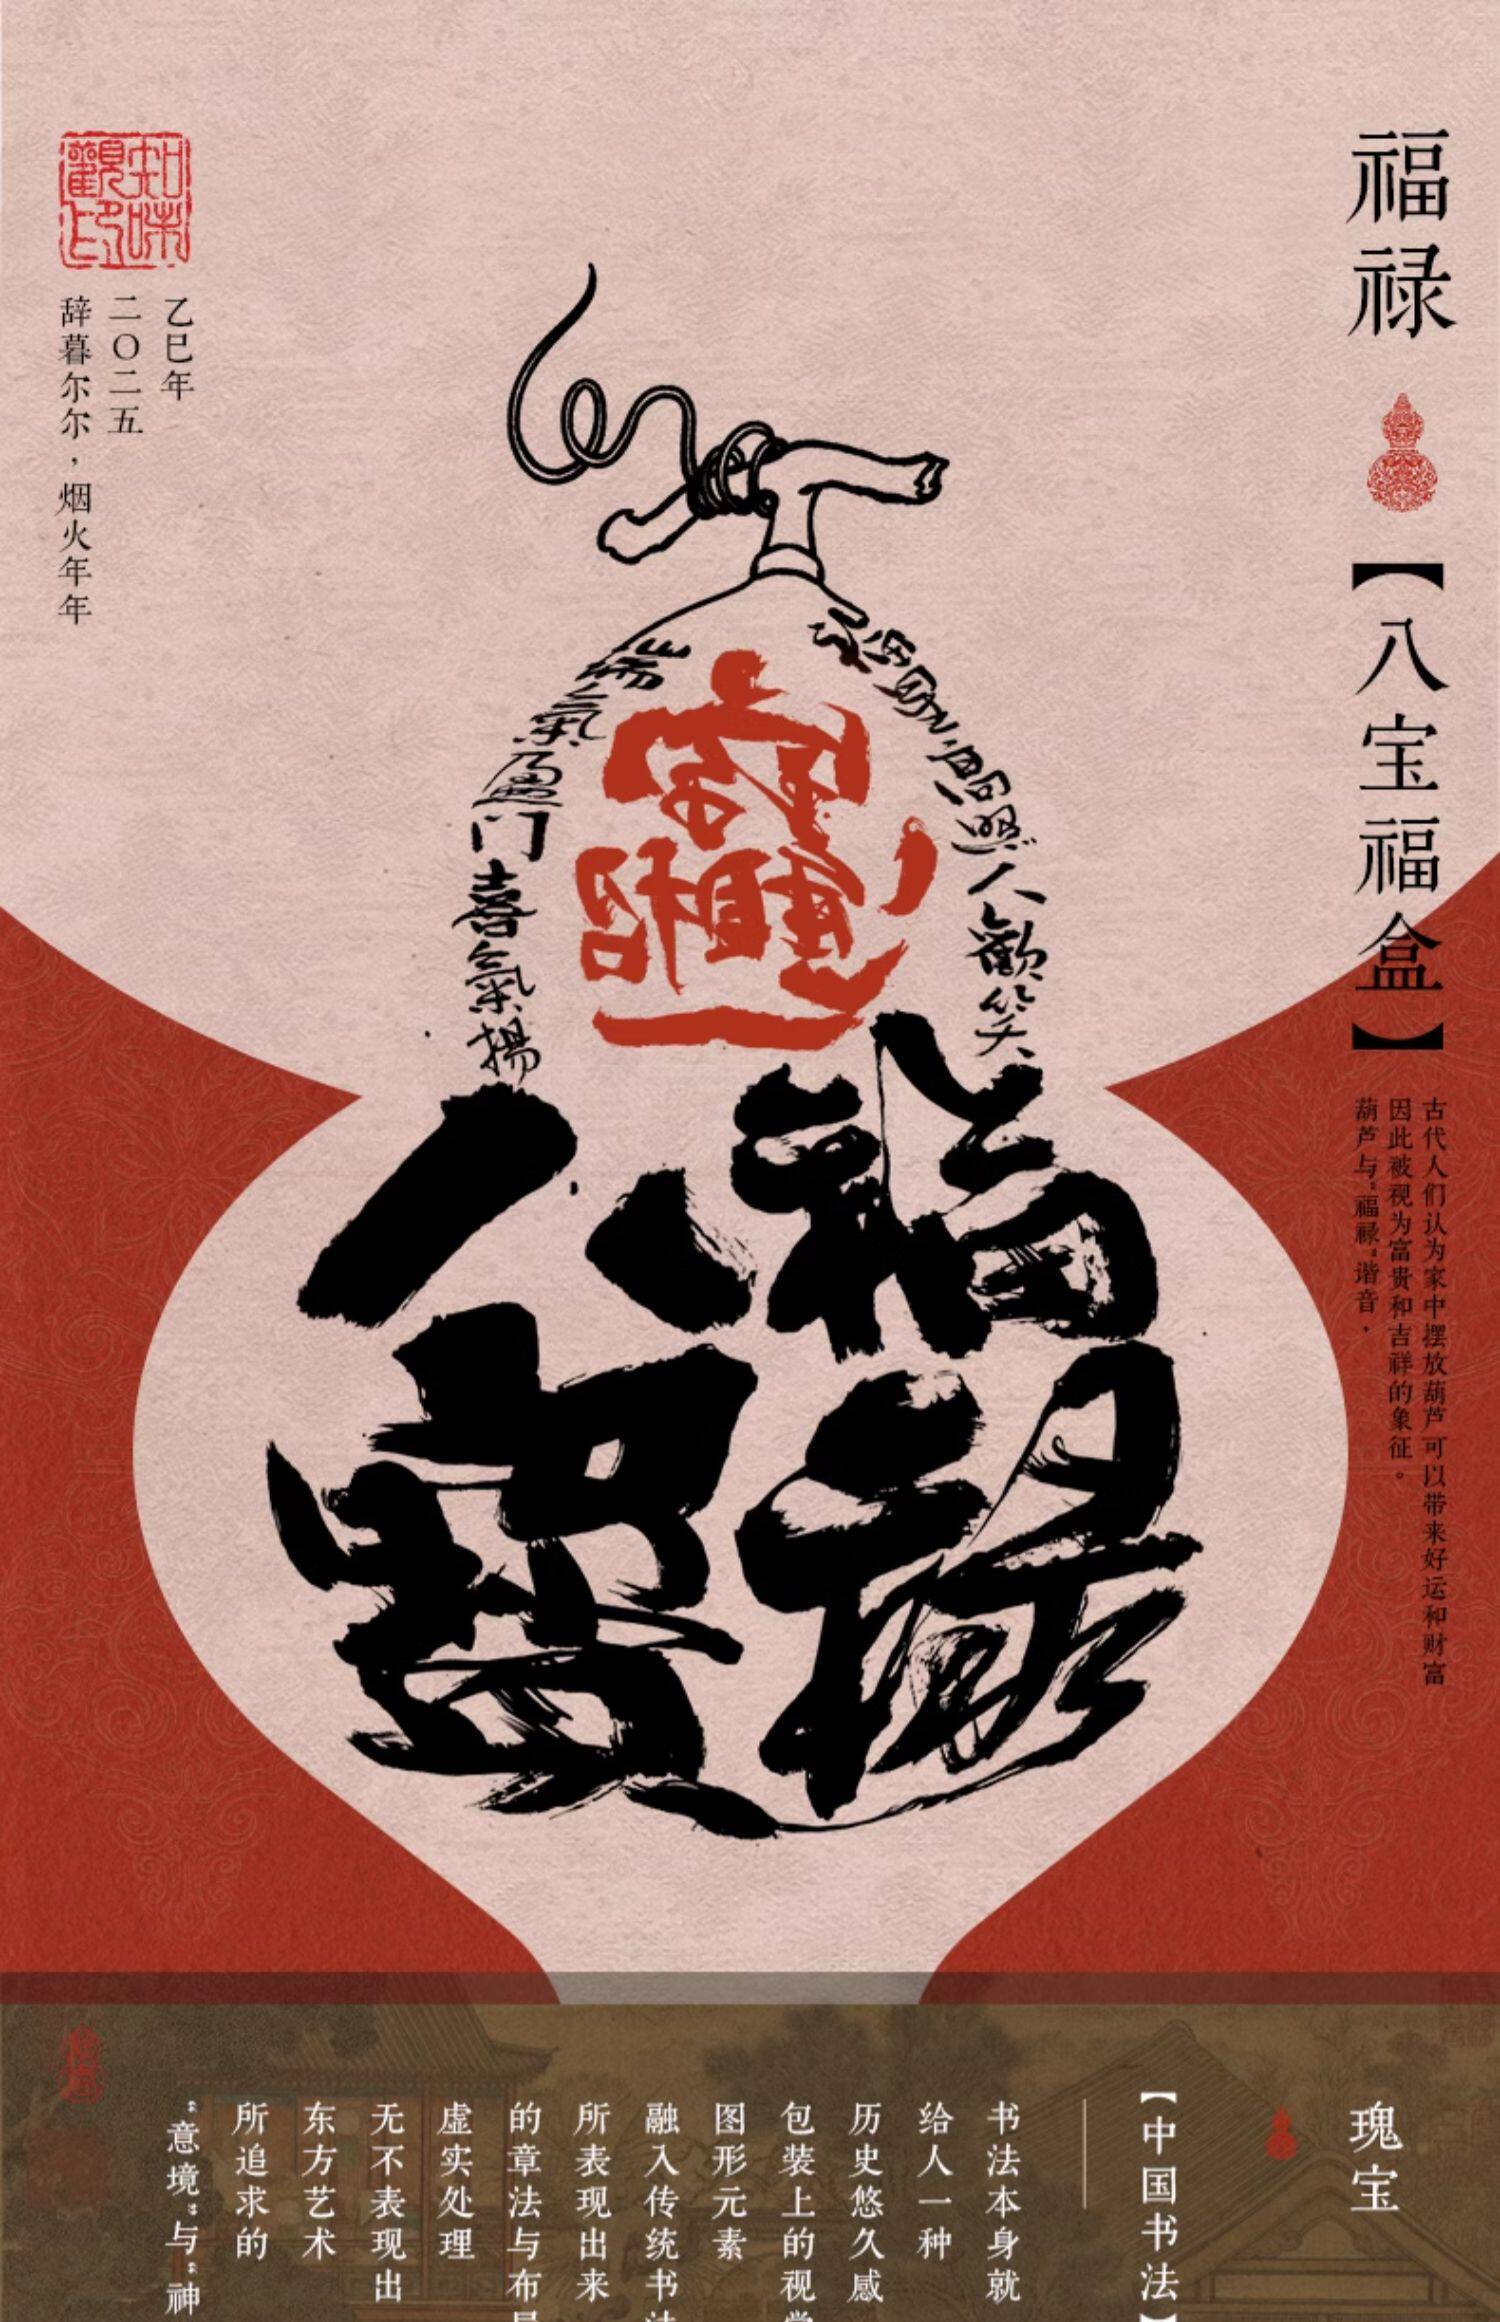 福禄
【八宝福盒】
古代人们认为家中摆放葫芦可以带来好运和财富
因此被视为富贵和吉祥的象征。
葫芦与“福禄”谐音，
知味
觀印
乙巳年
二〇二五
辞暮尔尔，烟火年年
人歡笑
瑞氣盈门喜氣揚
招財進寶
福禄
八寶
瑰宝
【中国书法】
书法本身就
给人一种
历史悠久感
包装上的视觉
图形元素
融入传统书法
所表现出来
的章法与布局
虚实处理
无不表现出
东方艺术
所追求的
“意境”与“神